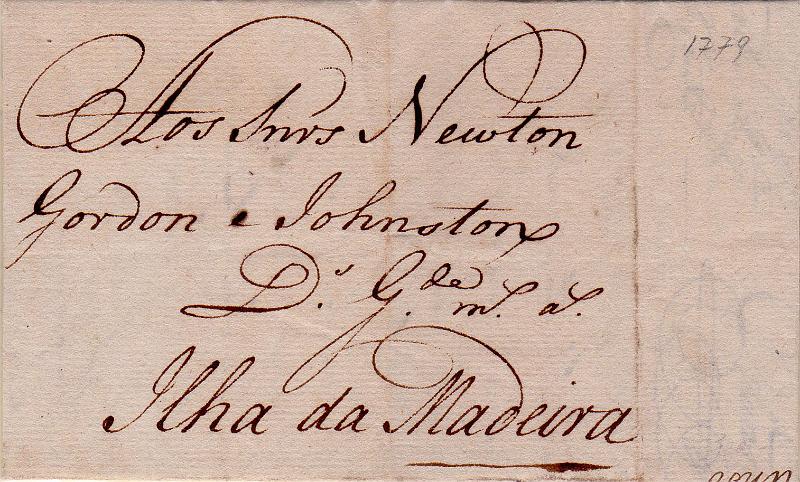 1779
Aos Snrs Newton
Gordon e Johnston
D.s G.de m.s a.s
Ilha da Madeira